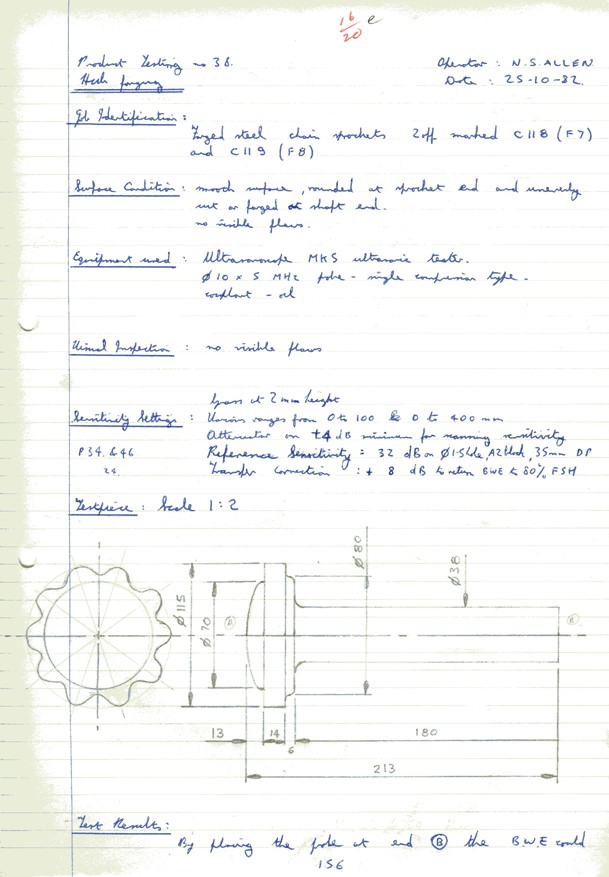 16/20 e
Product Testing no 36. Operator : N.S. ALLEN
Hash forging Date : 25-10-82.
Job Identification :
Forged steel chain sprockets 2 off marked C118 (F7)
and C119 (F8)
Surface Condition : smooth surface, rounded at sprocket end and unevenly
cut or forged at shaft end.
no visible flaws.
Equipment used : Ultrasonoscope MKS ultrasonic tester.
Ø 10 x 5 MHz probe - single compression type.
couplant - oil
Visual Inspection : no visible flaws
Grass at 2mm height
Sensitivity Settings : Various ranges from 0 to 100 & 0 to 400 mm
Attenuator on +4 dB minimum for scanning sensitivity
P34. & 46 Reference Sensitivity : 32 dB on Ø1.5 hole, A2 block, 35mm DP
24. Transfer Correction : + 8 dB to return BWE to 80% FSH
Testpiece : Scale 1:2
Ø 115
Ø 70
B
Ø 80
Ø 38
13
14
6
180
213
Test Results:
By placing the probe at end B the B.W.E could
156